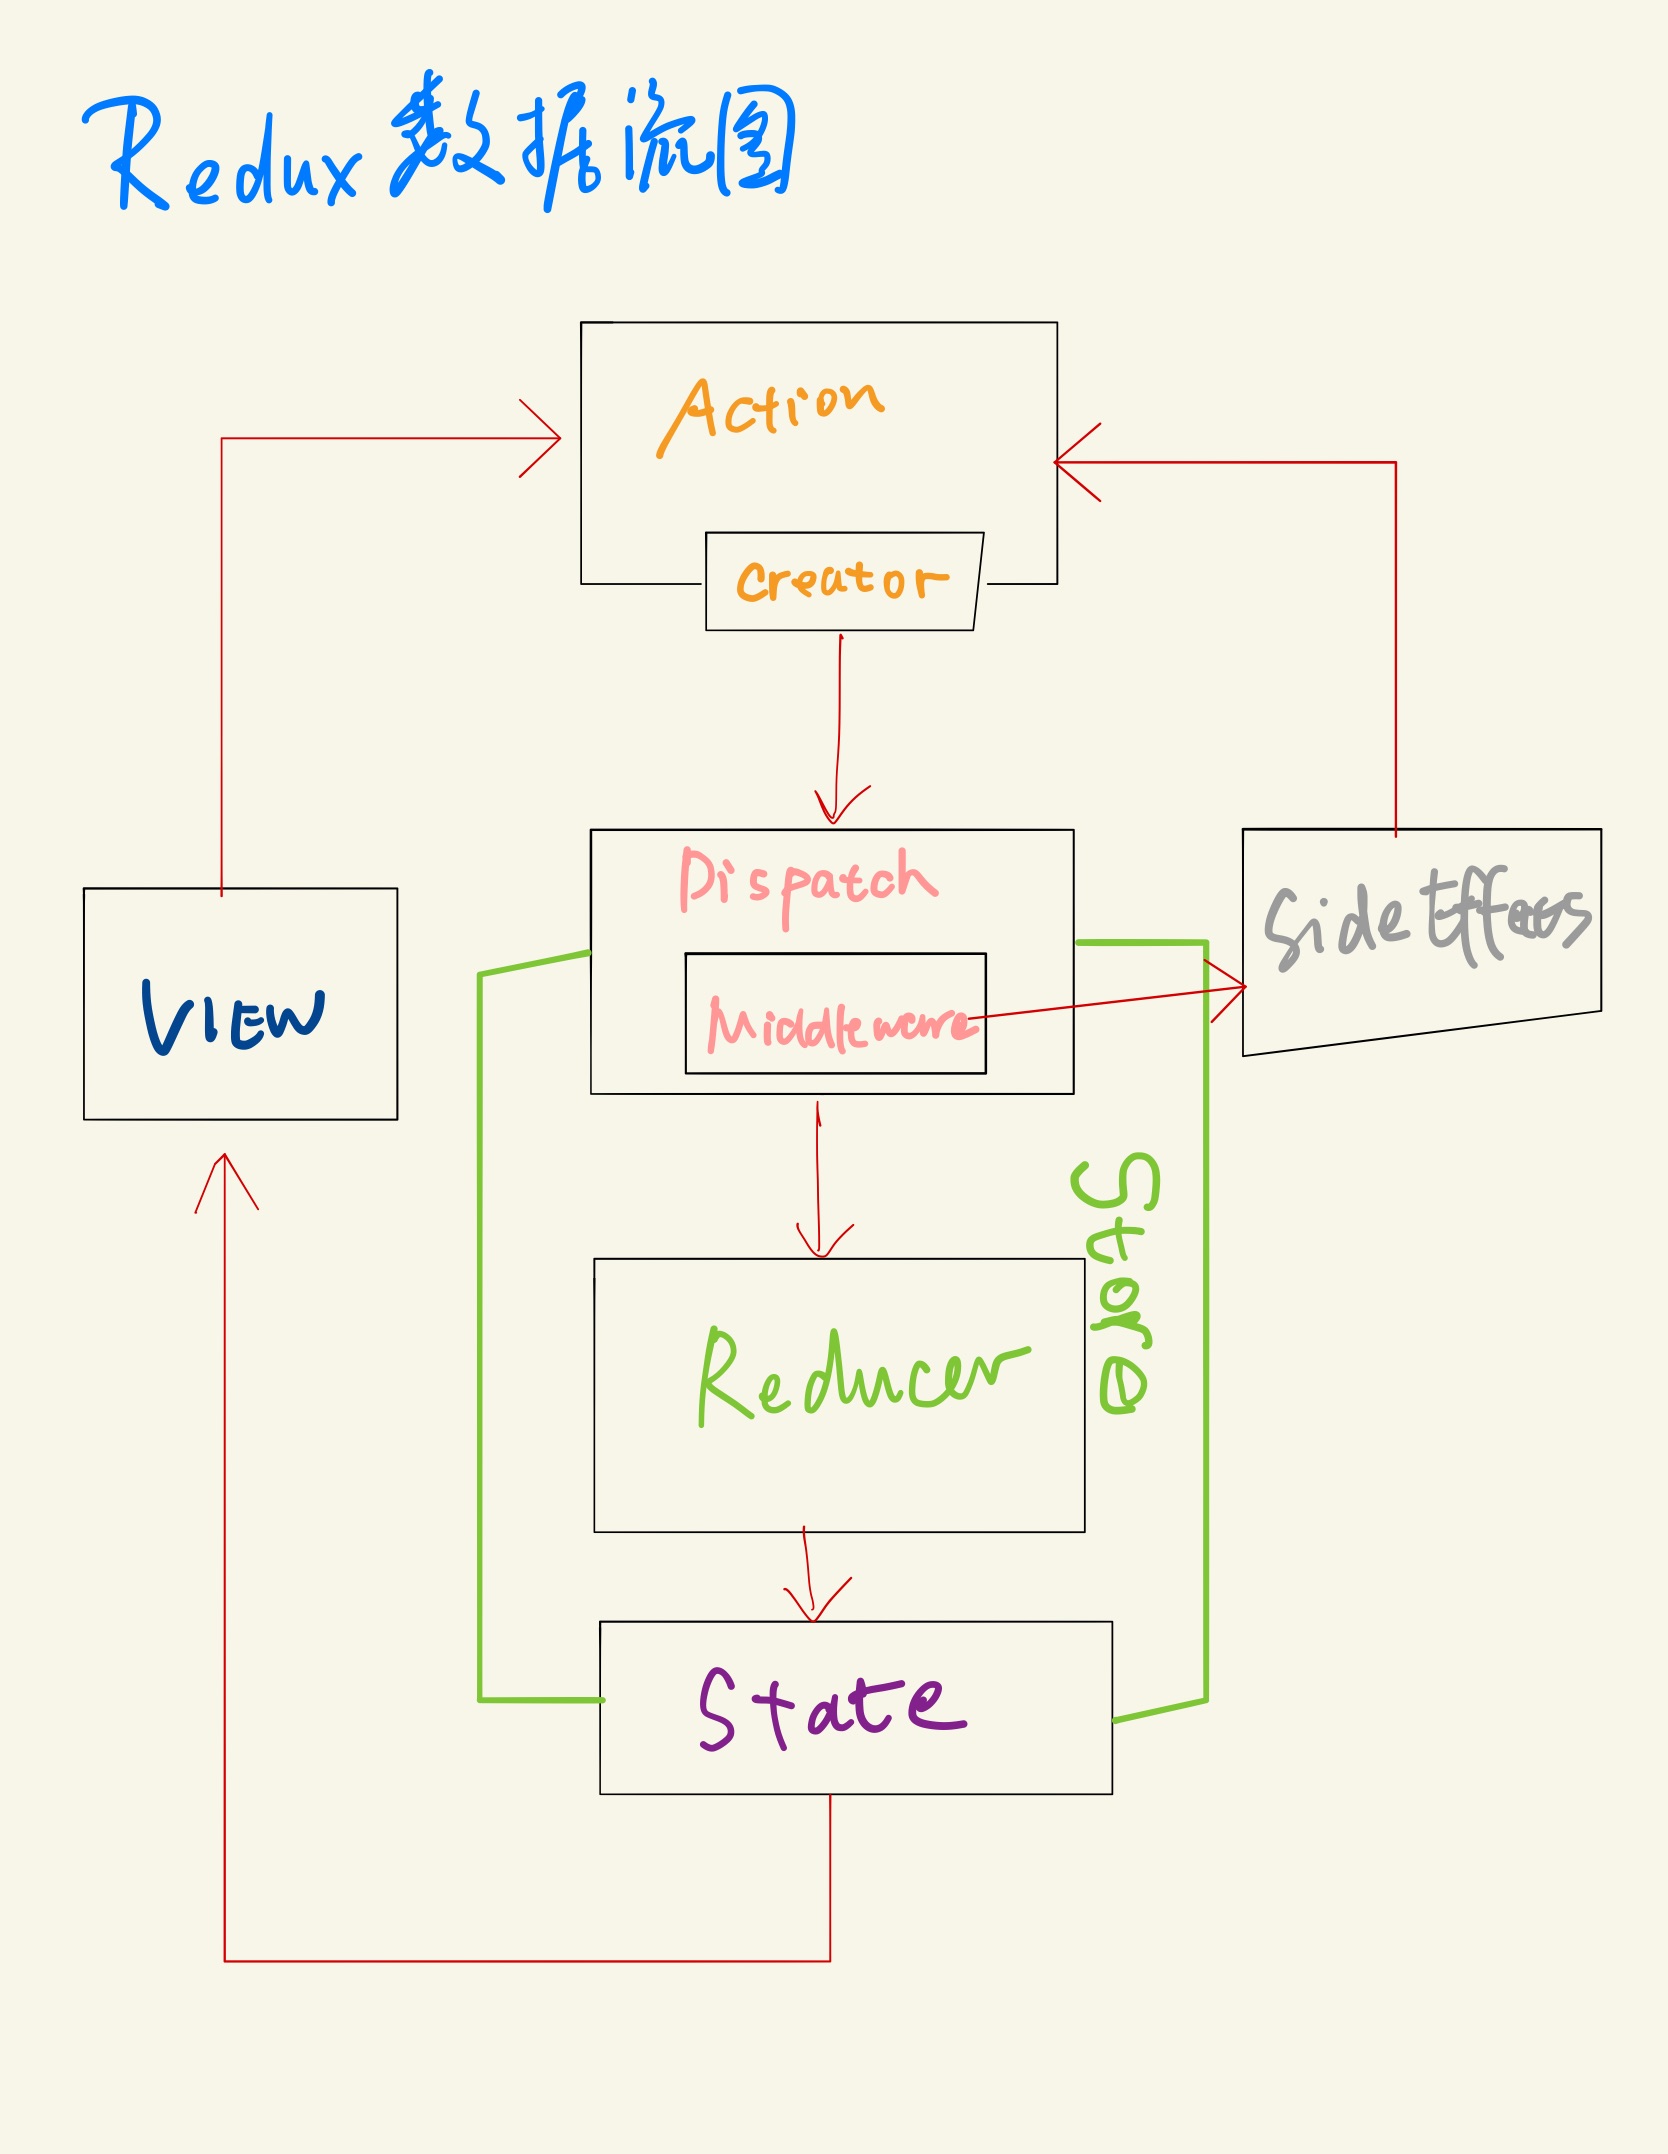 Redux数据流图
Action
Creator
Dispatch
Middleware
Side Effects
VIEW
Store
Reducer
State